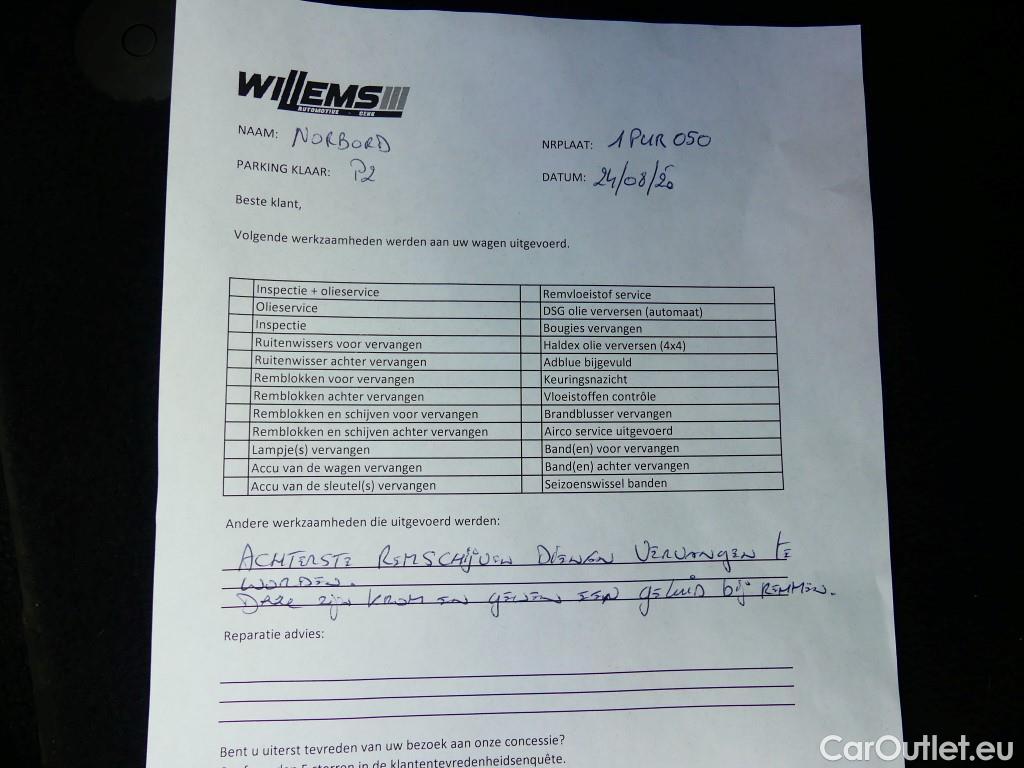 WILLEMS
AUTOMOTIVE - GENK
NAAM: NORBORD
NRPLAAT: 1PUR050
PARKING KLAAR: P2
DATUM: 24/08/20
Beste klant,
Volgende werkzaamheden werden aan uw wagen uitgevoerd.
Inspectie + olieservice
Remvloeistof service
Olieservice
DSG olie verversen (automaat)
Inspectie
Bougies vervangen
Ruitenwissers voor vervangen
Haldex olie verversen (4x4)
Ruitenwisser achter vervangen
Adblue bijgevuld
Remblokken voor vervangen
Keuringsnazicht
Remblokken achter vervangen
Vloeistoffen contrôle
Remblokken en schijven voor vervangen
Brandblusser vervangen
Remblokken en schijven achter vervangen
Airco service uitgevoerd
Lampje(s) vervangen
Band(en) voor vervangen
Accu van de wagen vervangen
Band(en) achter vervangen
Accu van de sleutel(s) vervangen
Seizoenswissel banden
Andere werkzaamheden die uitgevoerd werden:
ACHTERSTE REMSCHIJVEN DIENEN VERVANGEN TE
WORDEN.
DEZE ZIJN KROM EN GEVEN EEN GELUID BIJ REMMEN.
Reparatie advies:
Bent u uiterst tevreden van uw bezoek aan onze concessie?
5 sterren in de klantentevredenheidsenquête.
CarOutlet.eu